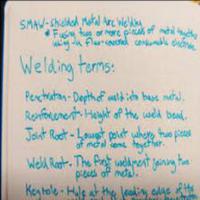 SMAW - Shielded Metal Arc Welding
* Fusing two or more pieces of metal together
using a flux-covered consumable electrode
Welding terms:
Penetration - Depth of weld into base metal.
Reinforcement - Height of the weld bead.
Joint Root - Lowest point where two pieces
of metal come together.
Weld Root - The first weldment joining two
pieces of metal.
Keyhole - Hole at the leading edge of the